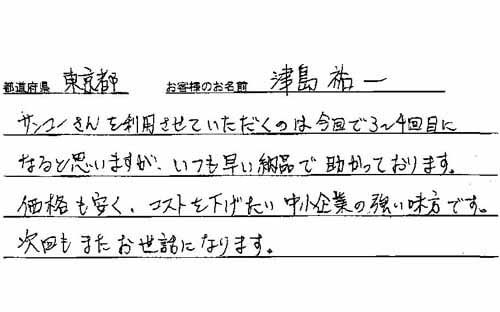 都道府県 東京都 お客様のお名前 津島祐一
サンコーさんを利用させていただくのは今回で3~4回目に
なると思いますが、いつも早い納品で助かっております。
価格も安く、コストを下げたい中小企業の強い味方です。
次回もまたお世話になります。